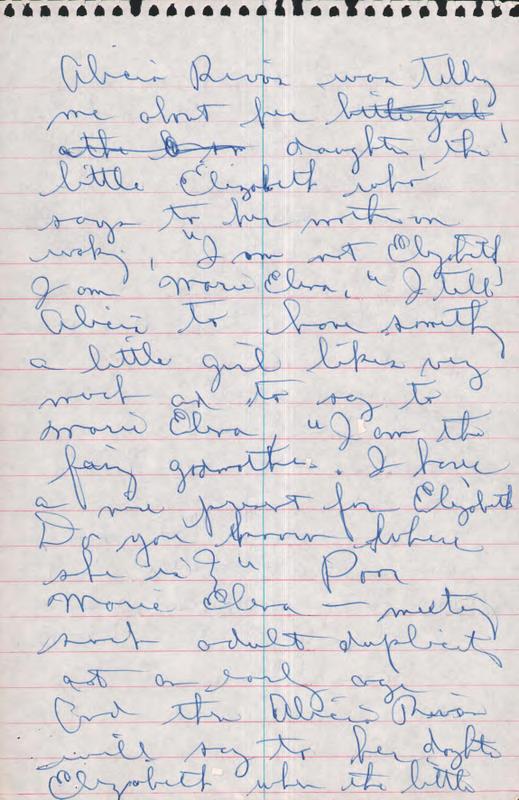 Alicia Rivas was telling
me about her little girl
daughter, the
little Elizabeth who
says to her mother on
waking, "I am not Elizabeth
I am Marie Elena." I tell
Alicia to have something
a little girl likes very
much and to say to
Marie Elena, "I am the
fairy godmother. I have
a nice present for Elizabeth
Do you know where
she is?" Poor
Marie Elena — meeting
such adult duplicity
at an early age
And then Alicia Rivas
will say to her daughter
Elizabeth when the little